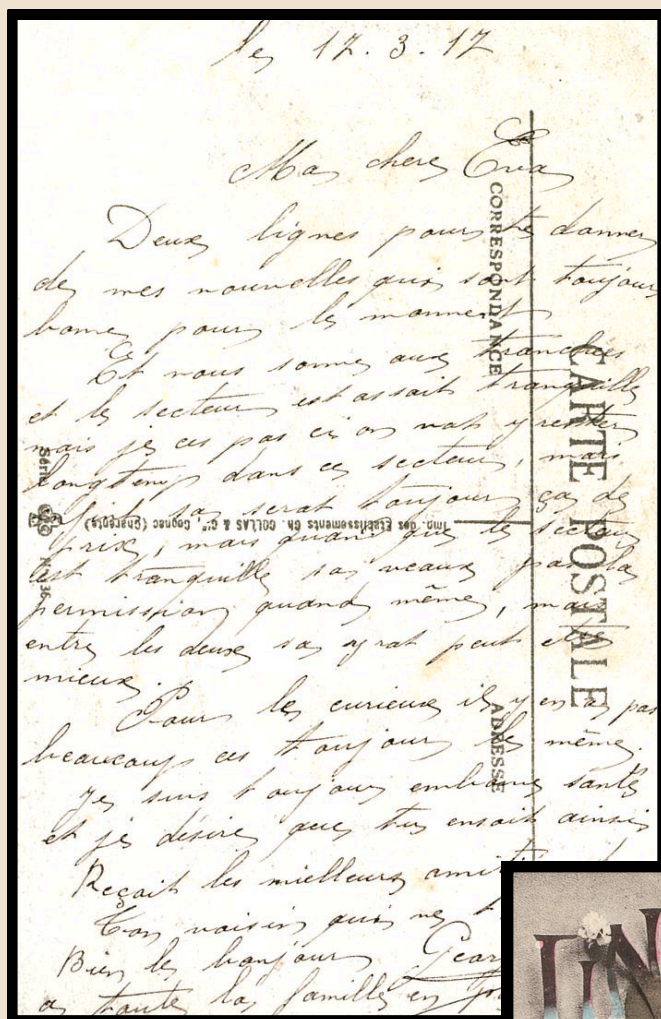 le 17.3.17
Ma chere Eva
Deux lignes pour te donner
de mes nouvelles qui sont toujours
bonne pour le moment
Et nous somme aux tranchées
et le secteur est assait tranquille
mais je ces pas ci on vat y rester
longtemp dans ce secteur, mais
sa serat toujour ça de
prix, mais quand que le secteur
est tranquille sa veaux pas la
permission quand même, mais
entre les deux sa yrat peut etre
mieux.
Pour les curieux il y en as pas
beaucoup ces toujours les même.
Je suis toujours en bonne santé
et je désire que tu ensoit ainsi
Reçoit les meilleurs
Ton voisin qui ne
Bien le bonjour
a toute la famille en
CORRESPONDANCE
CARTE POSTALE
ADRESSE
Imp. des Etablissements Ch. COLLAS & Cie, Cognac (Charente)
Série